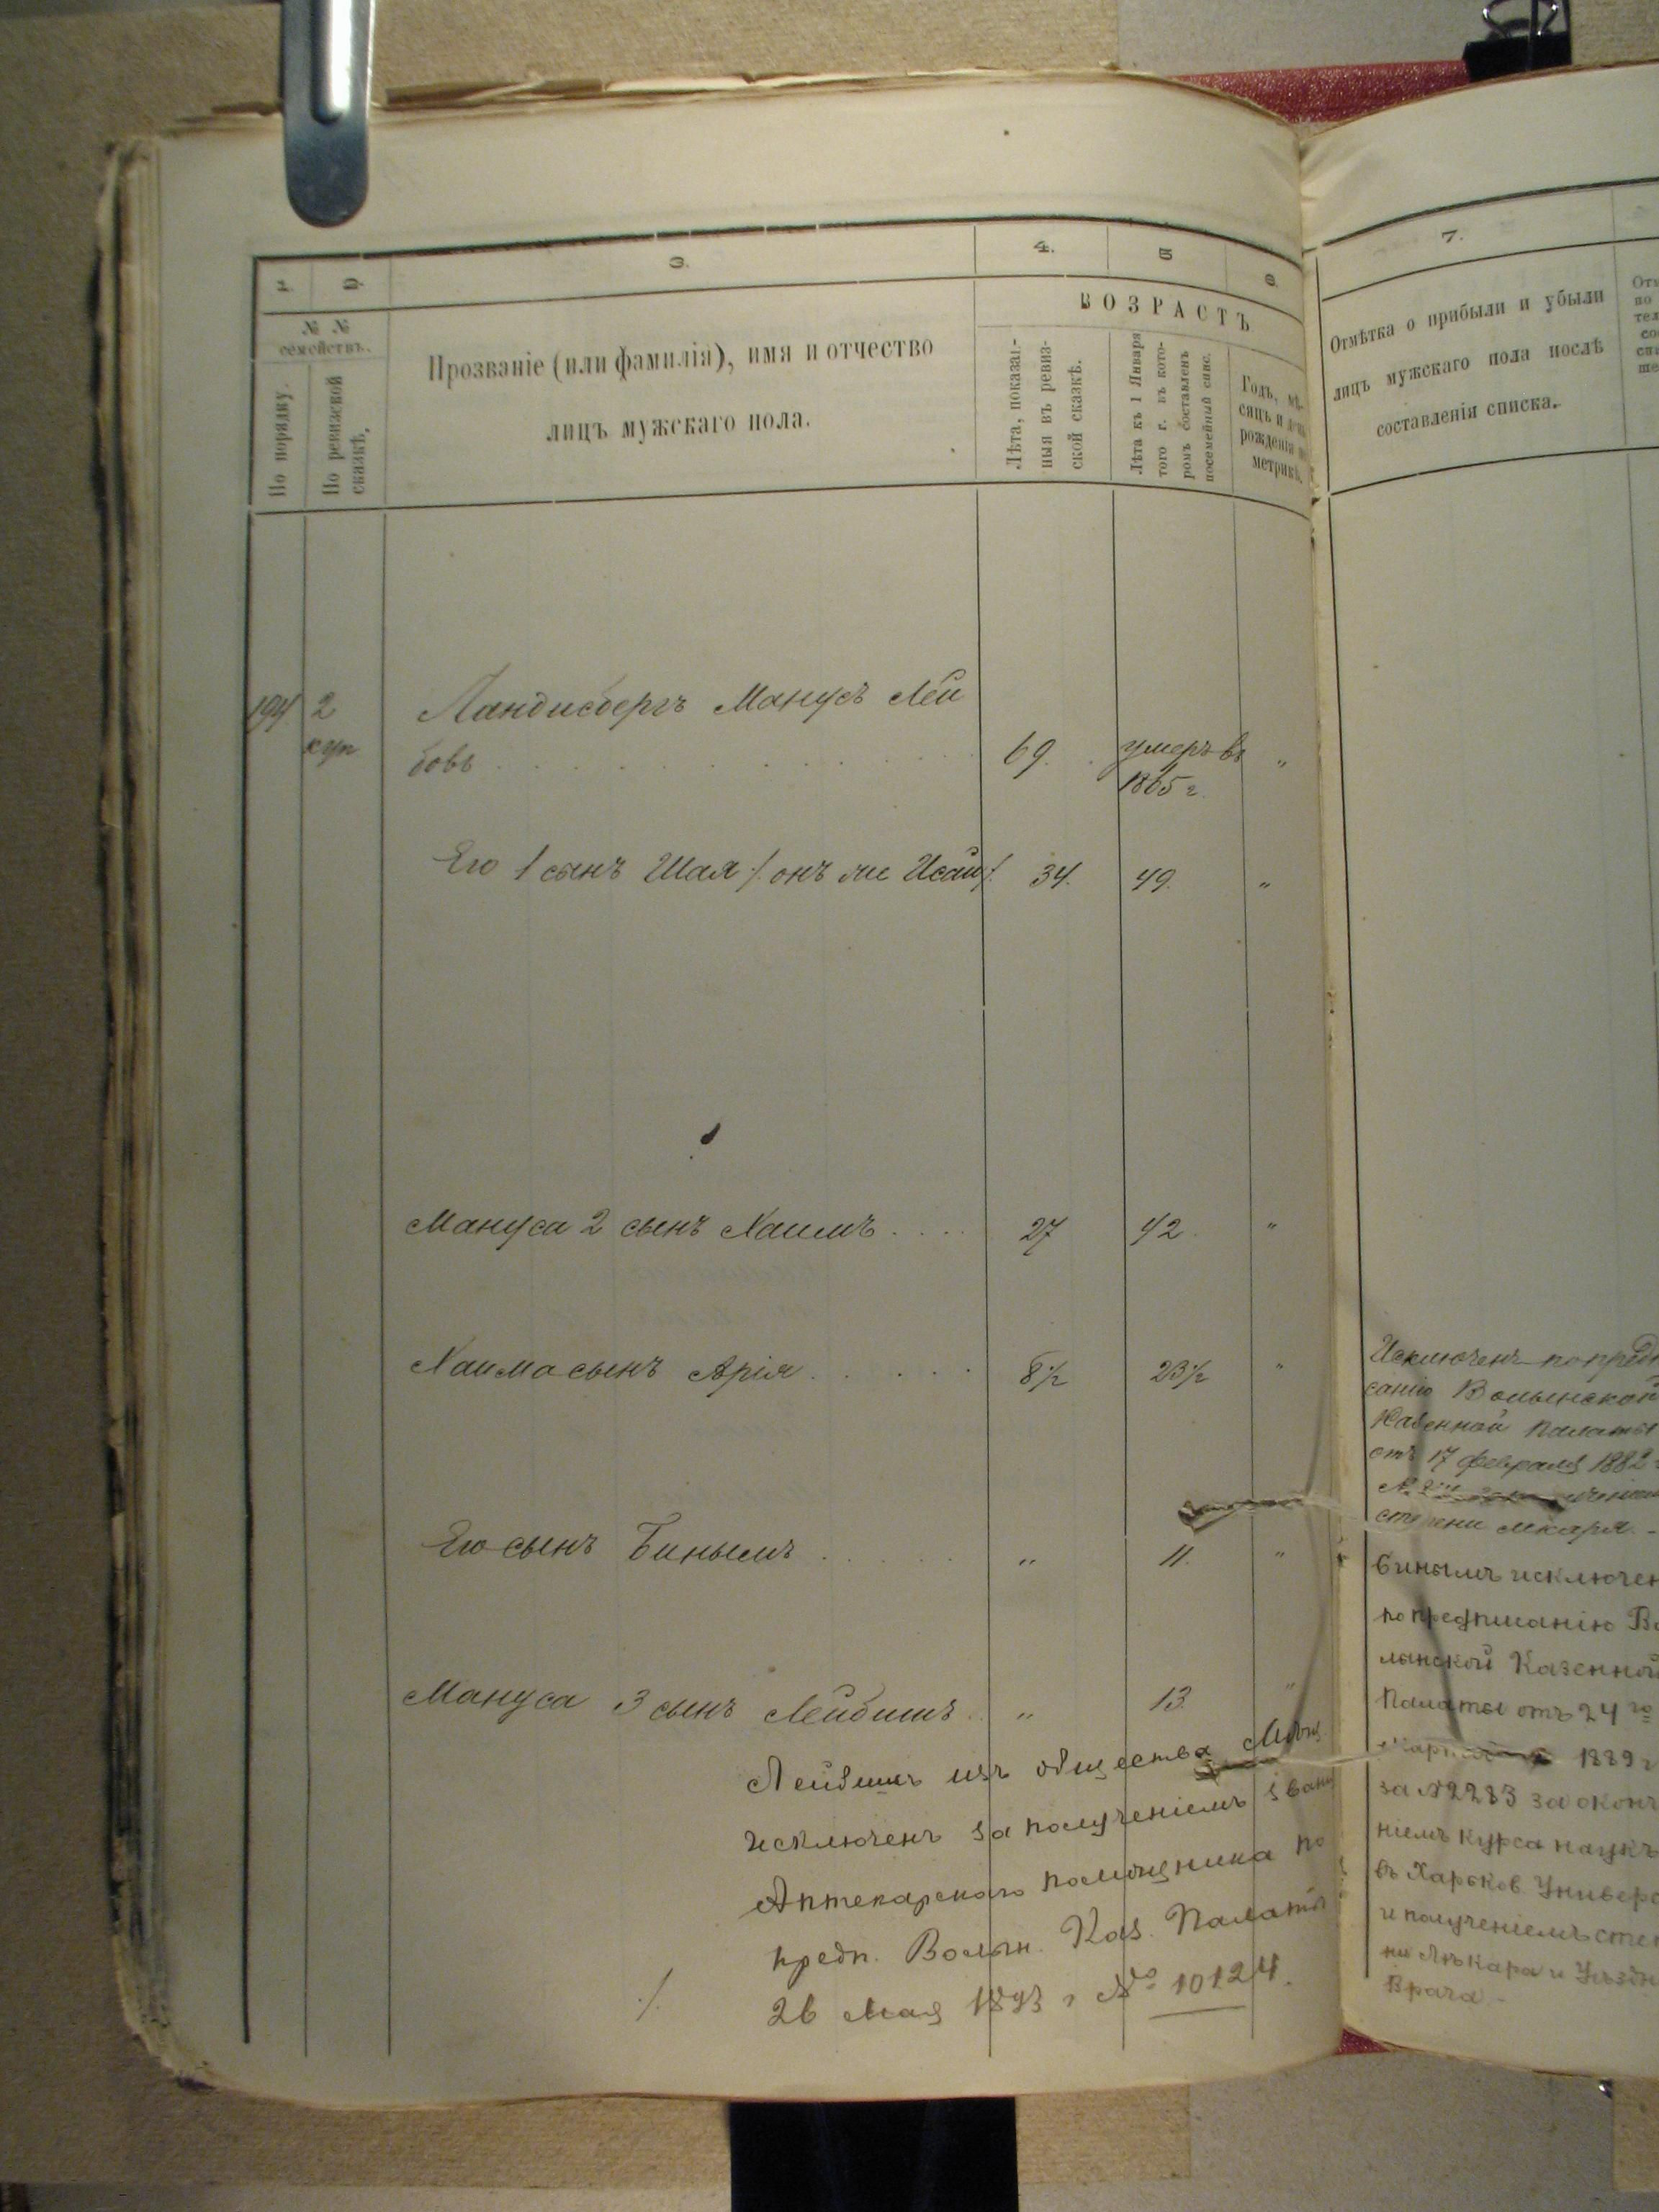 1. 2. 3. 4. 5 6. 7.
№ № семействъ.
По порядку.
По ревизской сказкѣ.
Прозваніе (или фамилія), имя и отчество
лицъ мужскаго пола.
ВОЗРАСТЪ
Лѣта, показан-
ныя въ ревиз-
ской сказкѣ.
Лѣта къ 1 Января
того г. въ кото-
ромъ составленъ
посемейный спис.
Годъ, мѣ-
сяцъ и день
рожденія по
метрикѣ.
Отмѣтка о прибыли и убыли
лицъ мужскаго пола послѣ
составленія списка.
194 2 Ландисбергъ Манусъ Лей
куп бовъ 69. умеръ въ "
1865 г.
Его 1 сынъ Шая /. онъ же Исай /. 34. 49. "
Мануса 2 сынъ Хаимъ 27 42. "
Хаима сынъ Арія 8½ 23½ "
Его сынъ Бинымъ " 11. "
Мануса 3 сынъ Лейбишъ " 13. "
Лейбишъ изъ общества
исключенъ за полученіемъ зван
Аптекарскаго помощника по
предп. Волын. Каз. Палаты
26 Мая 1893 г № 10124.
Исключенъ по предп
санію Волынской
Казенной Палаты
отъ 17 февраля 1882
степени лекаря. -
Бинымъ исключен
по предписанію Во
лынской Казенной
Палаты отъ 24го
1889 г
за №2283 за оконч
ніемъ курса наукъ
въ Харьков. Универс
и полученіемъ степ
ни Лѣкаря и Уѣздн
Врача -